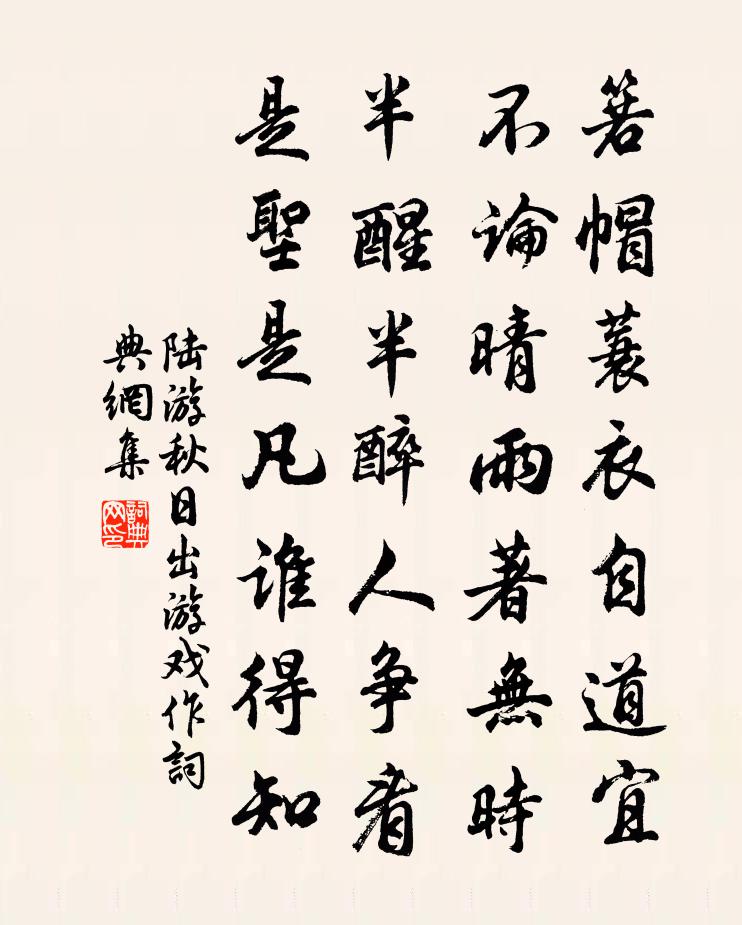 箬帽蓑衣自道宜
不論晴雨著無時
半醒半醉人争看
是聖是凡誰得知
陆游秋日出游戏作詞
典網集
詞典网印